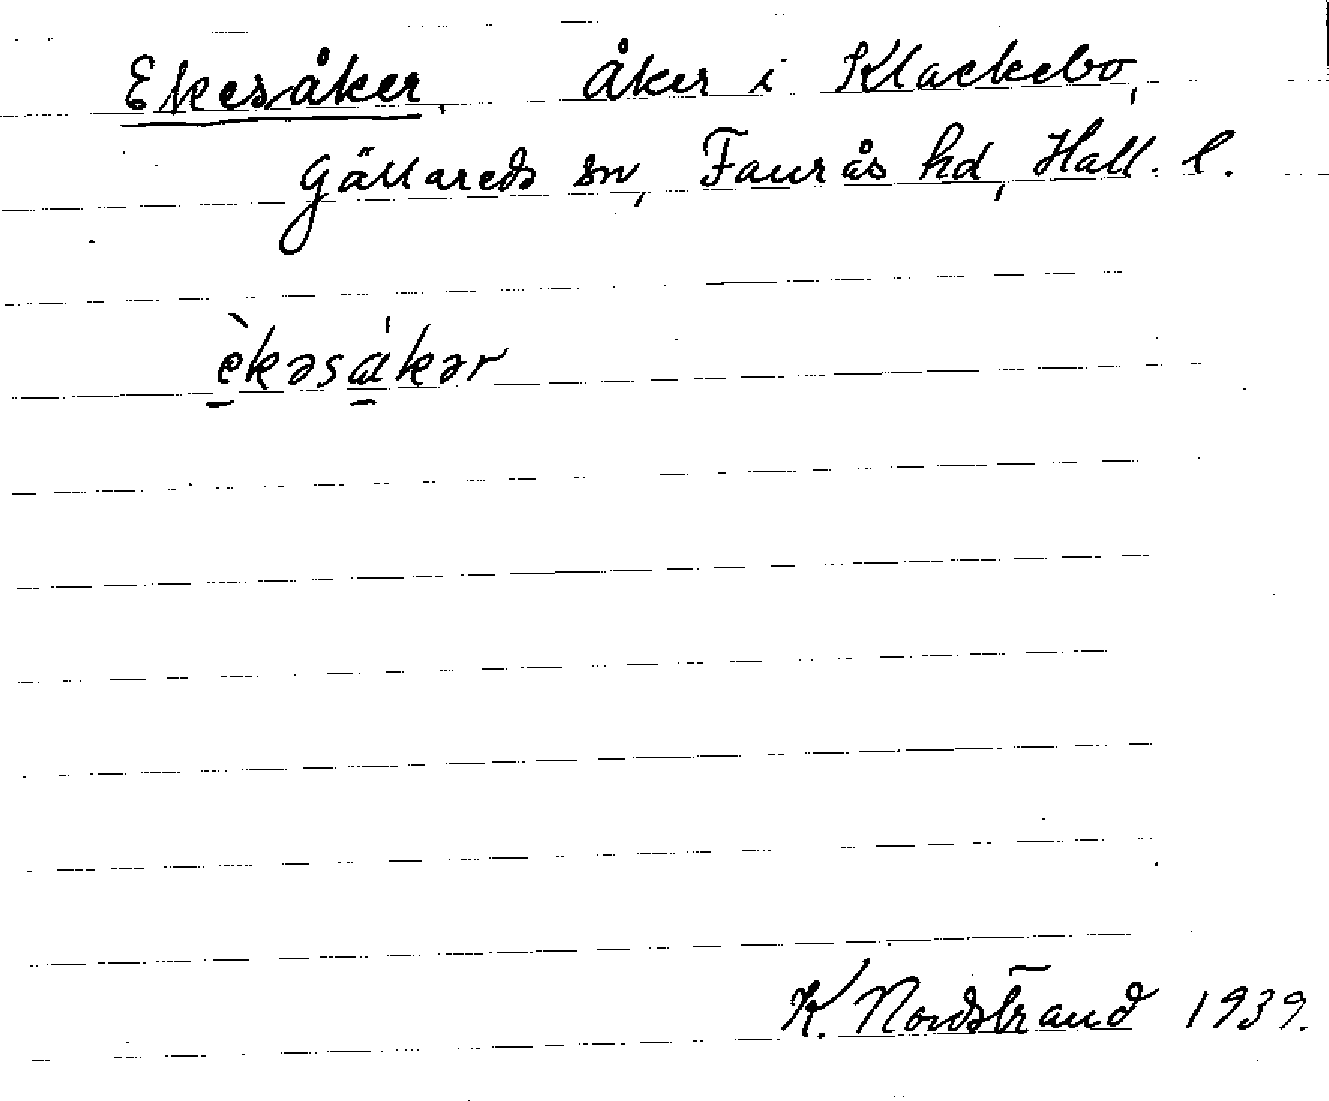 Ekesåker, åker i Klackebo,
Gällareds sn, Faurås hd, Hall. l.
èkəsa̍kər
K. Nordstrand 1939.